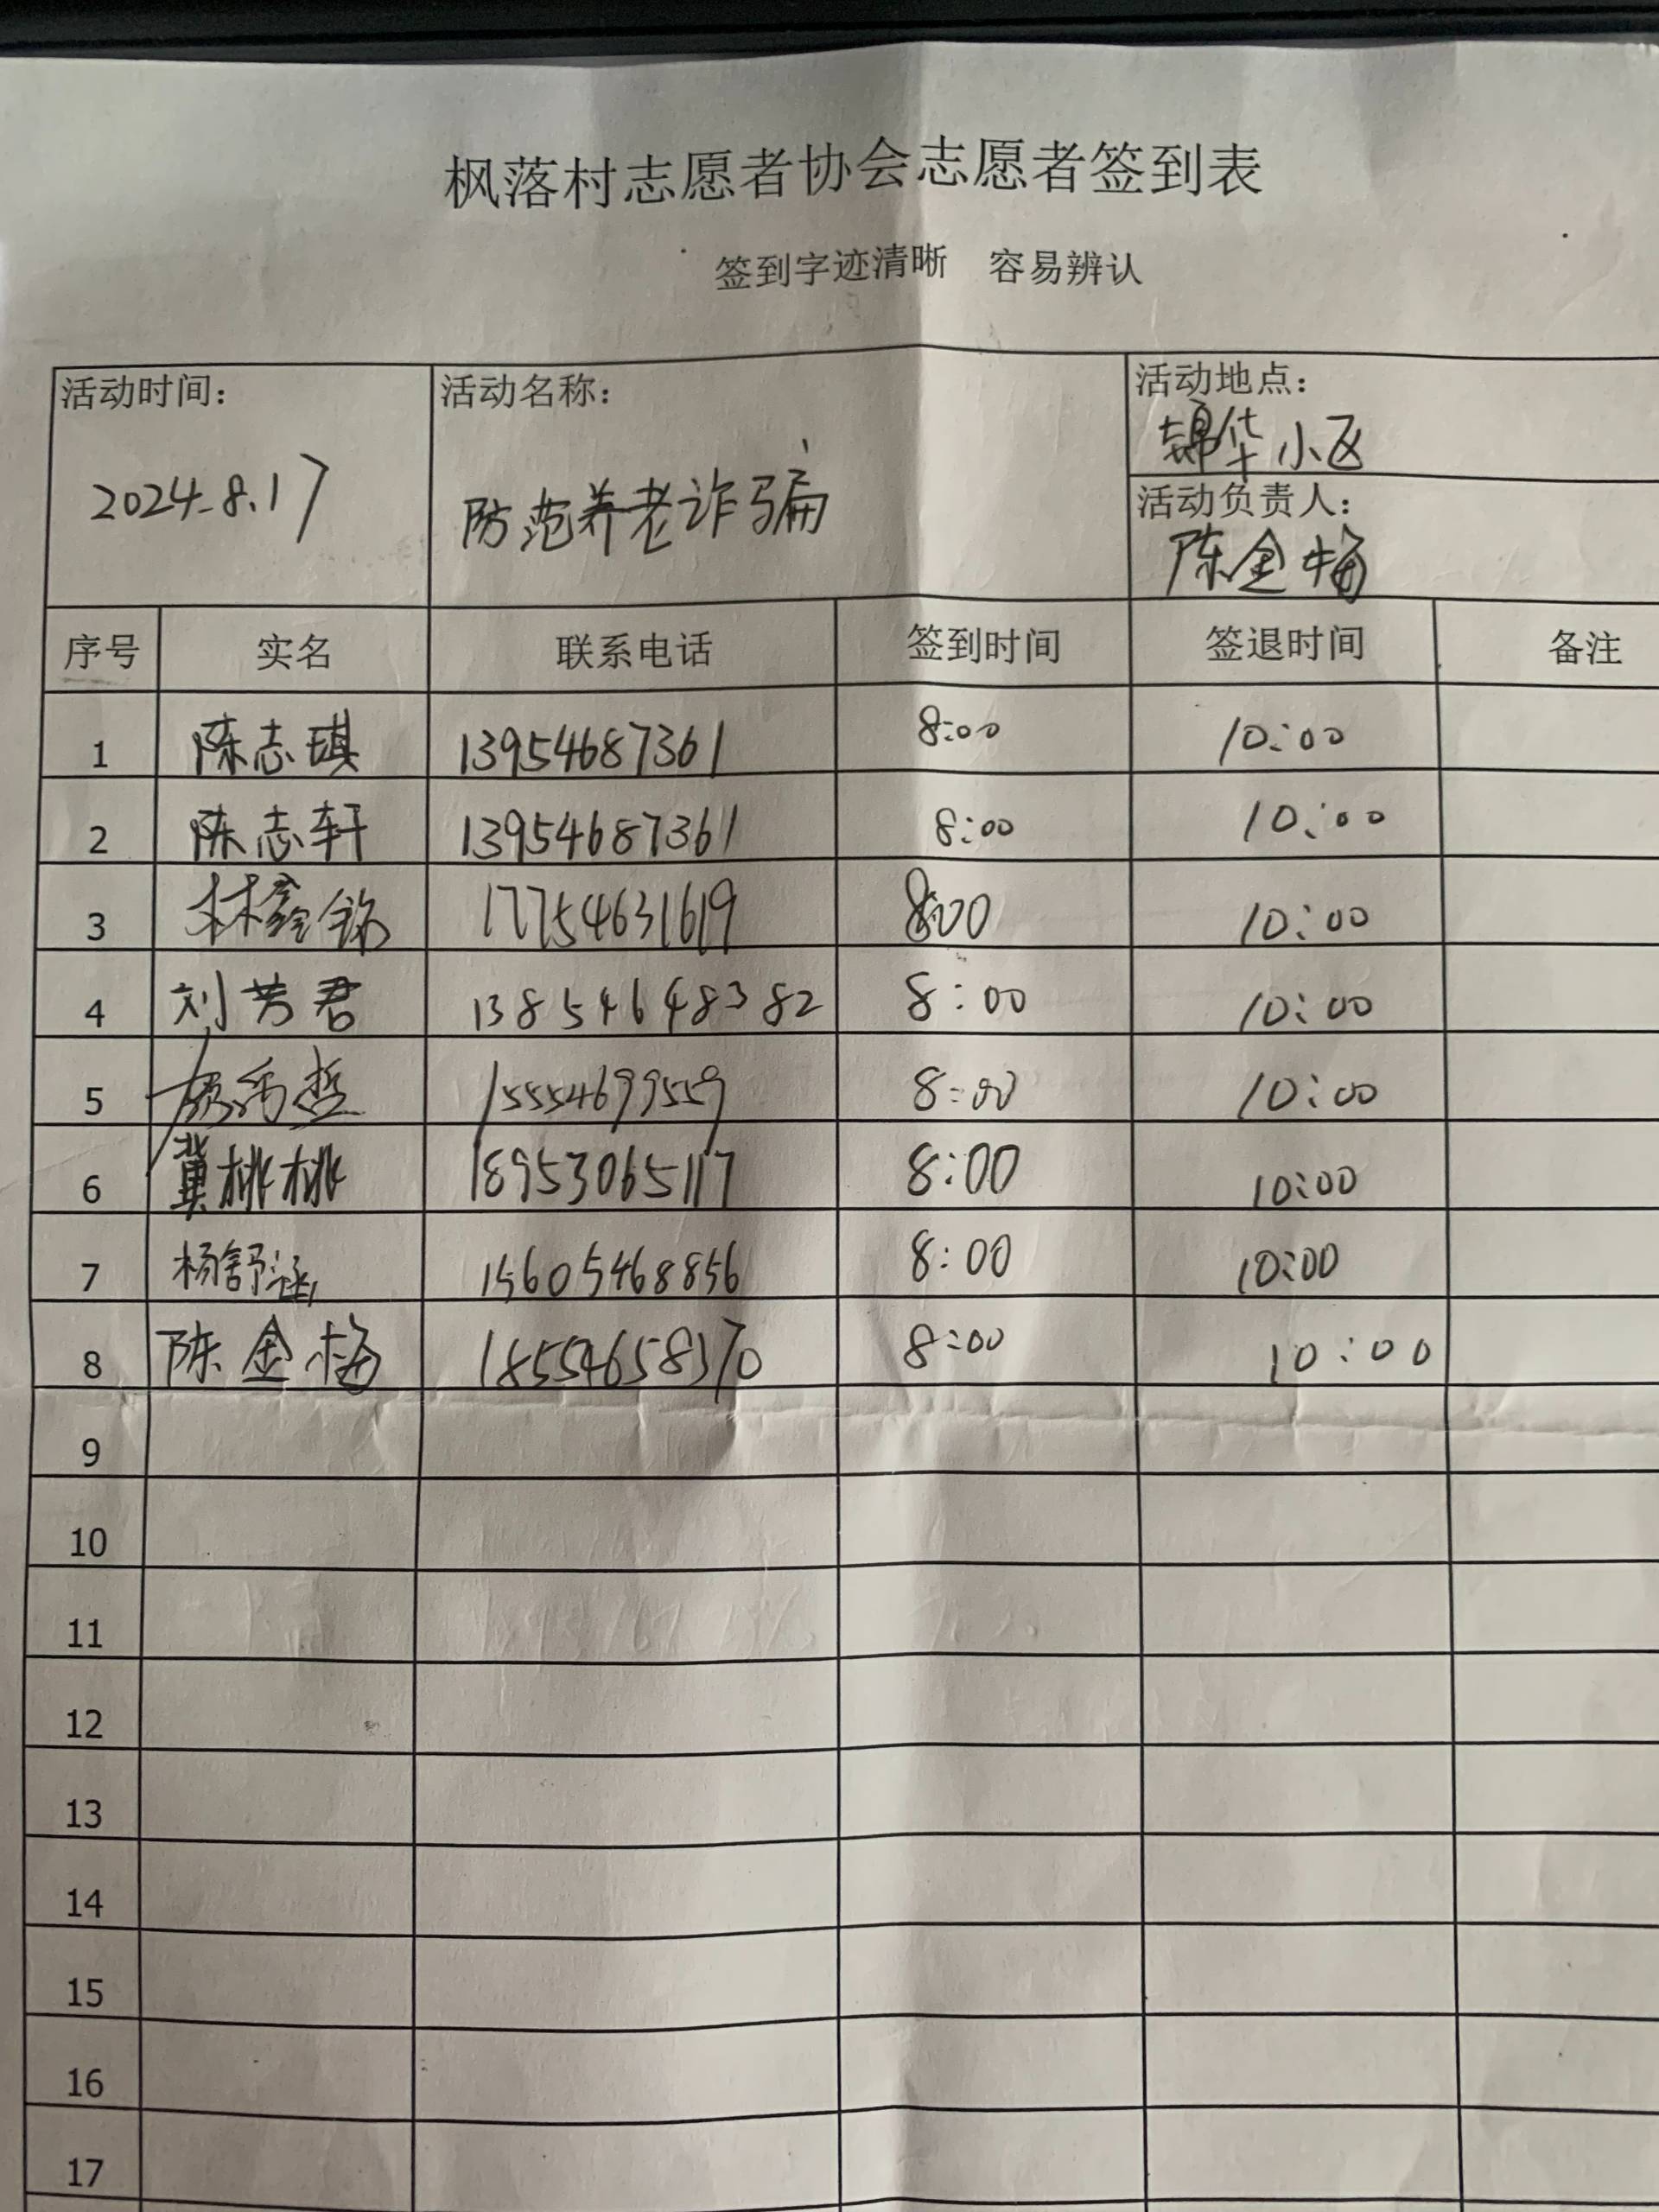 枫落村志愿者协会志愿者签到表
签到字迹清晰 容易辨认
活动时间： 活动名称： 活动地点：
锦华小区
2024.8.17 防范养老诈骗
活动负责人：
陈金梅
序号 实名 联系电话 签到时间 签退时间 备注
1 陈志琪 13954687361 8:00 10:00
2 陈志轩 13954687361 8:00 10:00
3 林鑫铭 17754631619 8:00 10:00
4 刘芳君 13854648382 8:00 10:00
5 15554699559 8:00 10:00
6 冀桃桃 18953065117 8:00 10:00
7 杨舒涵 15605468856 8:00 10:00
8 陈金梅 18554658370 8:00 10:00
9
10
11
12
13
14
15
16
17